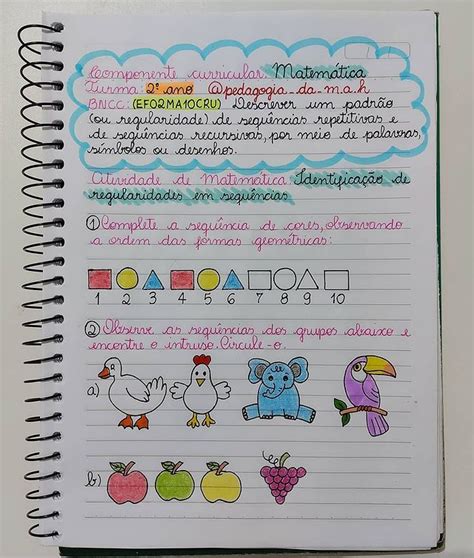 Componente curricular: Matemática
Turma: 2º ano @pedagogia_da_m.a.h
BNCC: (EF02MA10CRU) Descrever um padrão
(ou regularidade) de sequências repetitivas e
de sequências recursivas, por meio de palavras,
símbolos ou desenhos.
Atividade de Matemática: Identificação de
regularidades em sequências
1 Complete a sequência de cores, observando
a ordem das formas geométricas:
1 2 3 4 5 6 7 8 9 10
2 Observe as sequências dos grupos abaixo e
encontre o intruso. Circule-o.
a)
b)